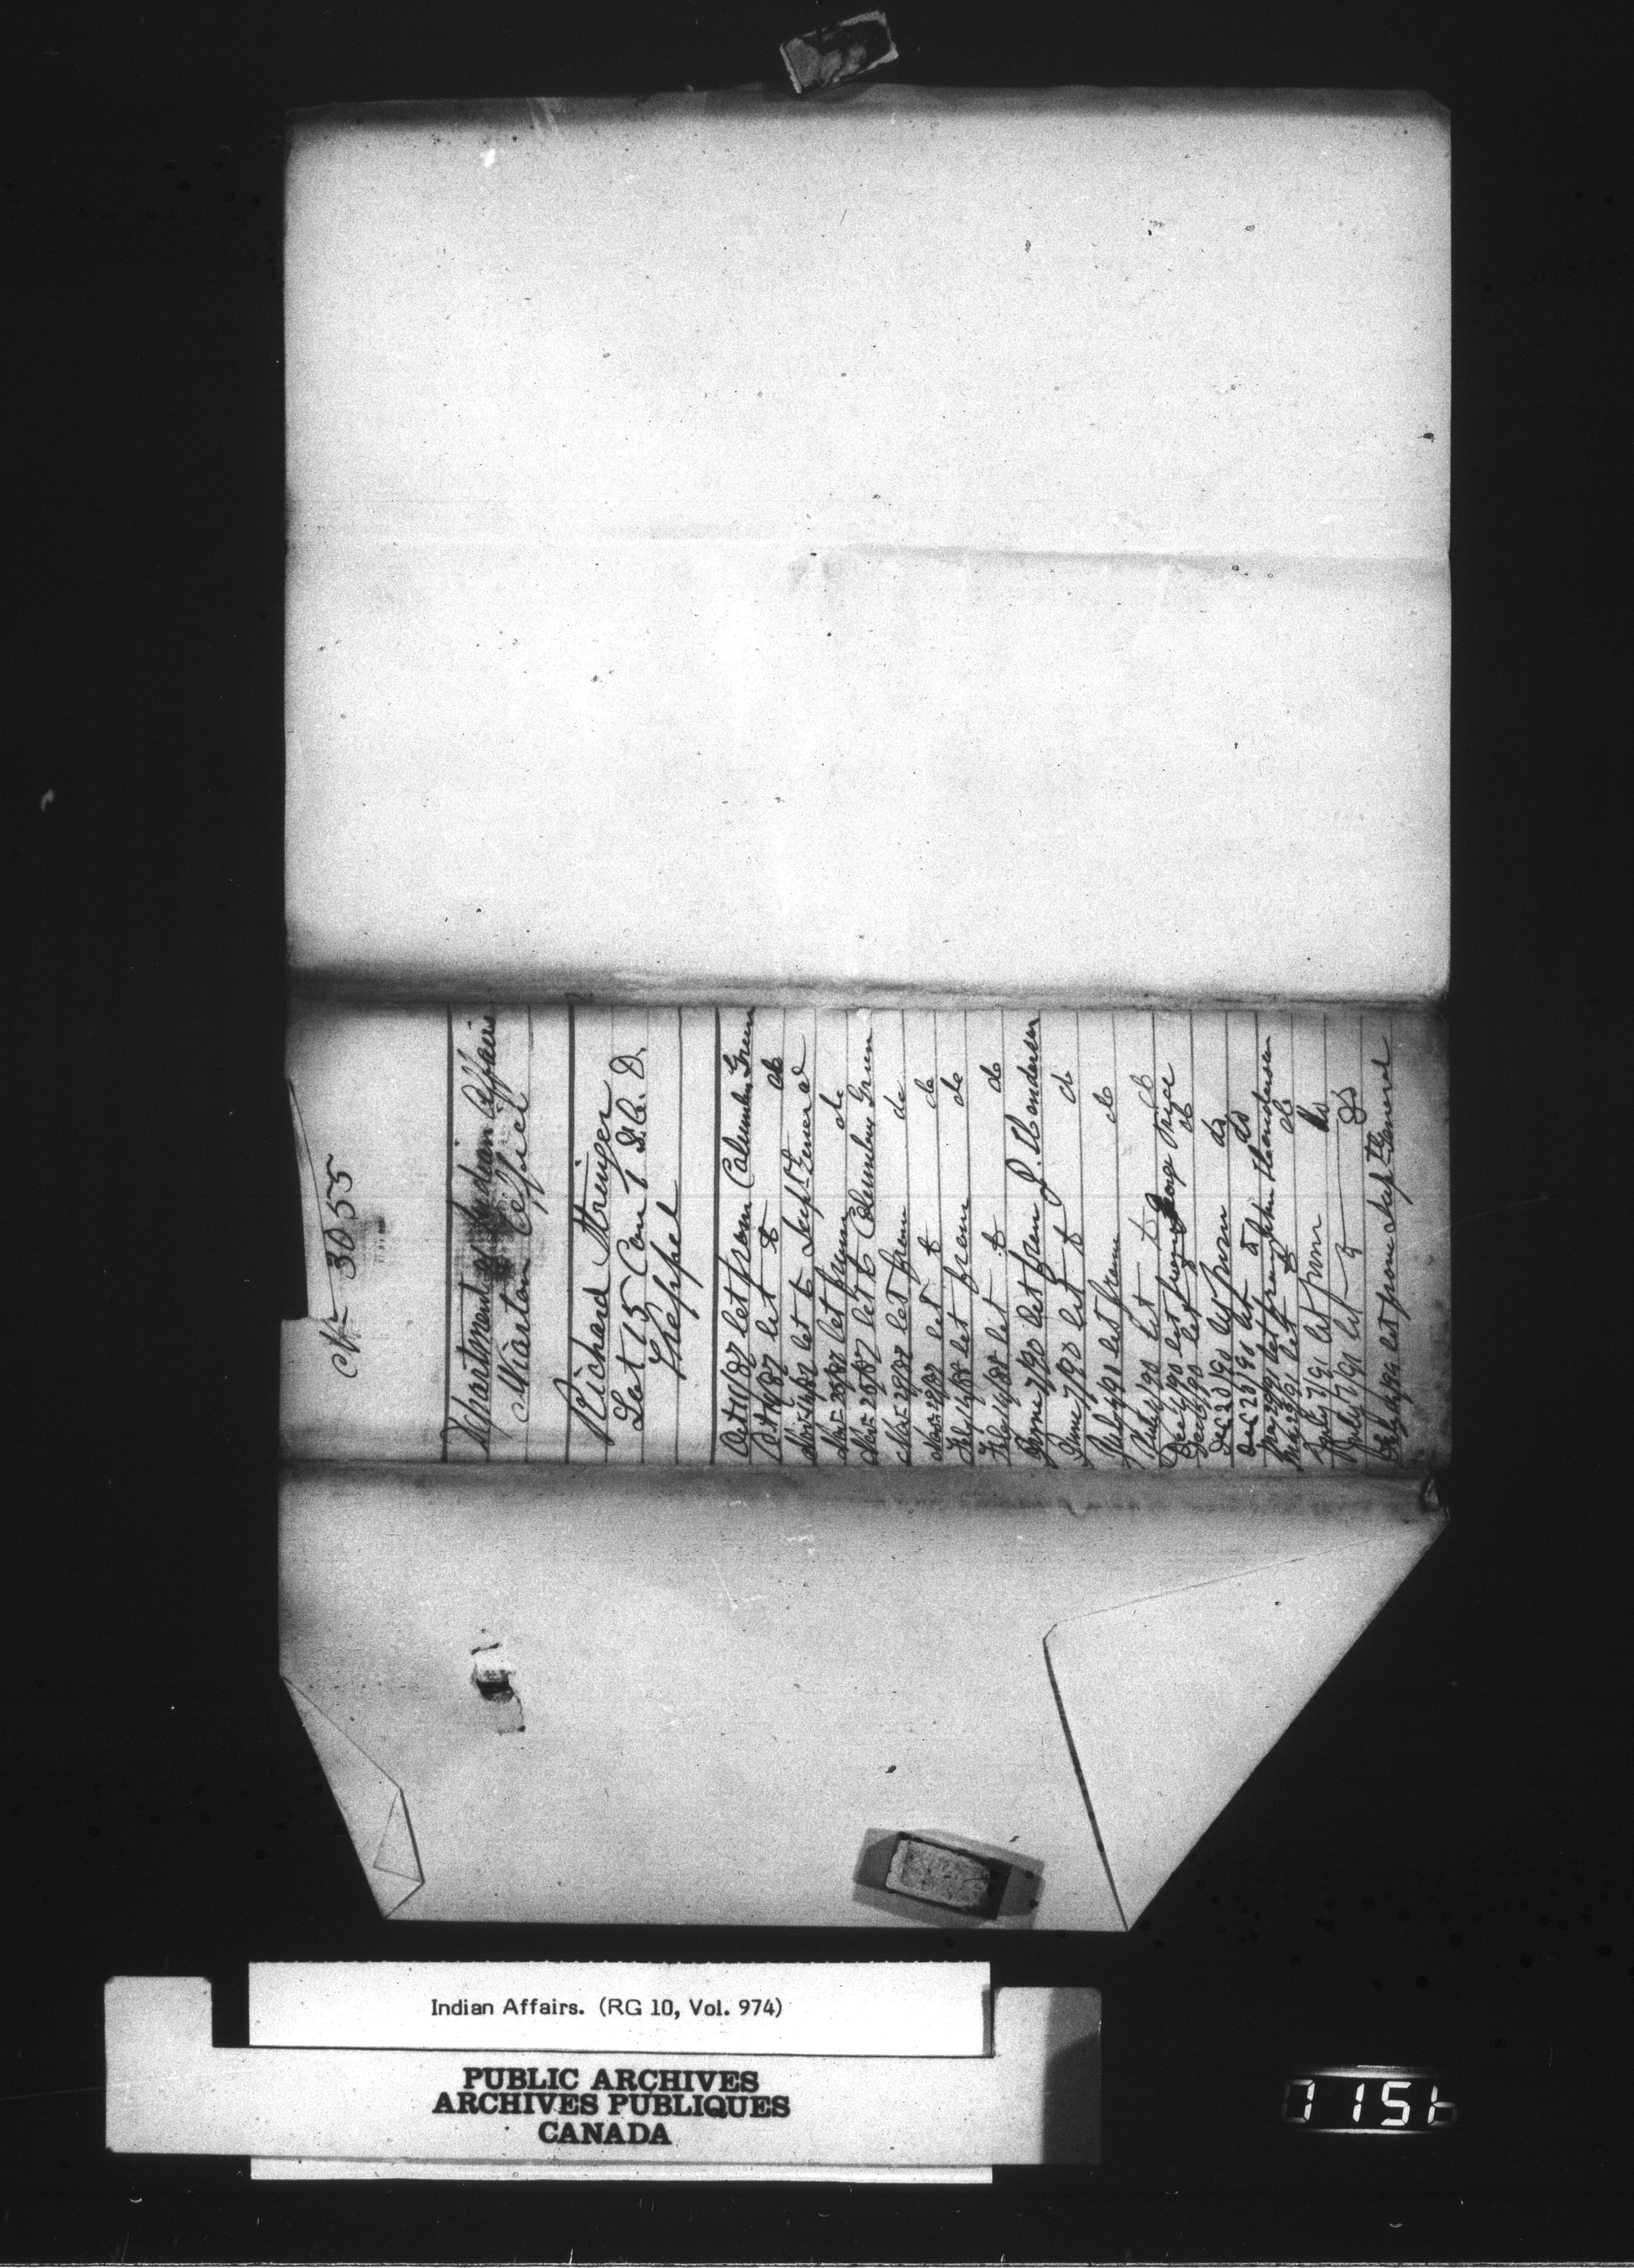 No 3055
Department of Indian Affairs
Wiarton Office
Richard Stringer
Lot 15 Con 1 S.C.D.
Keppel
Oct 11/87 let from Columbus Green
Oct 14/87 let to do
Nov 14/87 let to Supt General
Nov 25/87 let from do
Nov 25/87 let to Columbus Green
Nov 29/87 let from do
Nov 29/87 let to do
Feby 14/88 let from do
Feby 14/88 let to do
June 7/90 let from J. Henderson
June 7/90 let to do
July 9/90 let from do
let to do
Dec 9/90 let from George Price
Dec 9/90 let to do
Dec 20/90 let from do
Dec 20/90 let to do
Mar 29/91 let from John Henderson
Mar 29/91 let to do
July 7/91 let from do
July 7/91 let to do
let from Supt General
Indian Affairs. (RG 10, Vol. 974)
PUBLIC ARCHIVES
ARCHIVES PUBLIQUES
CANADA